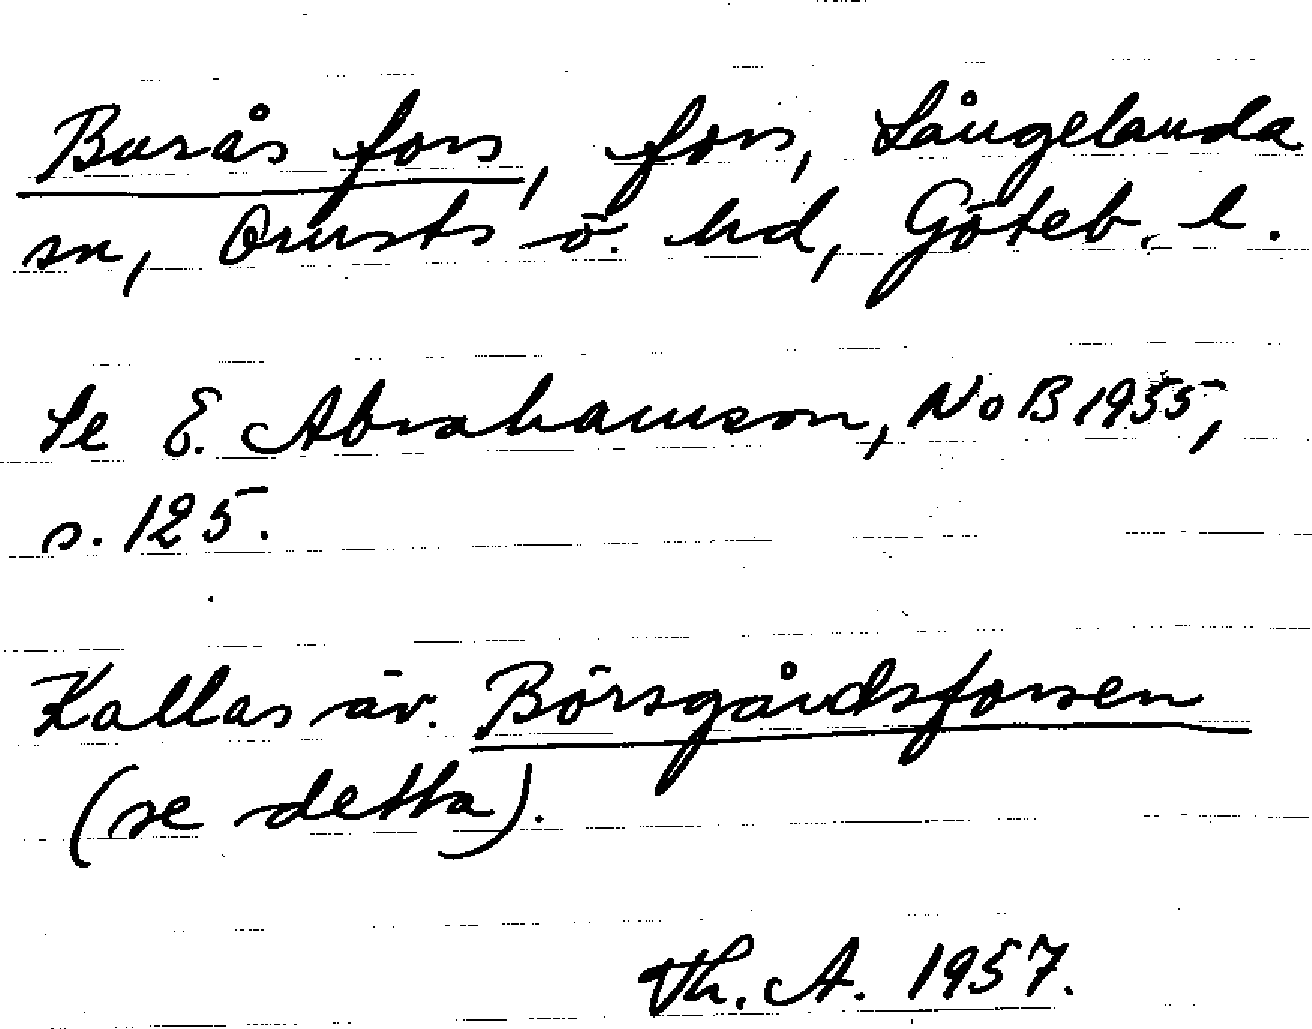 Burås fors, fors, Långelanda
sn, Orusts ö. hd, Göteb. l.
Se E. Abrahamson, NoB 1955,
s. 125.
Kallas äv. Börsgårdsforsen
(se detta).
Th. A. 1957.